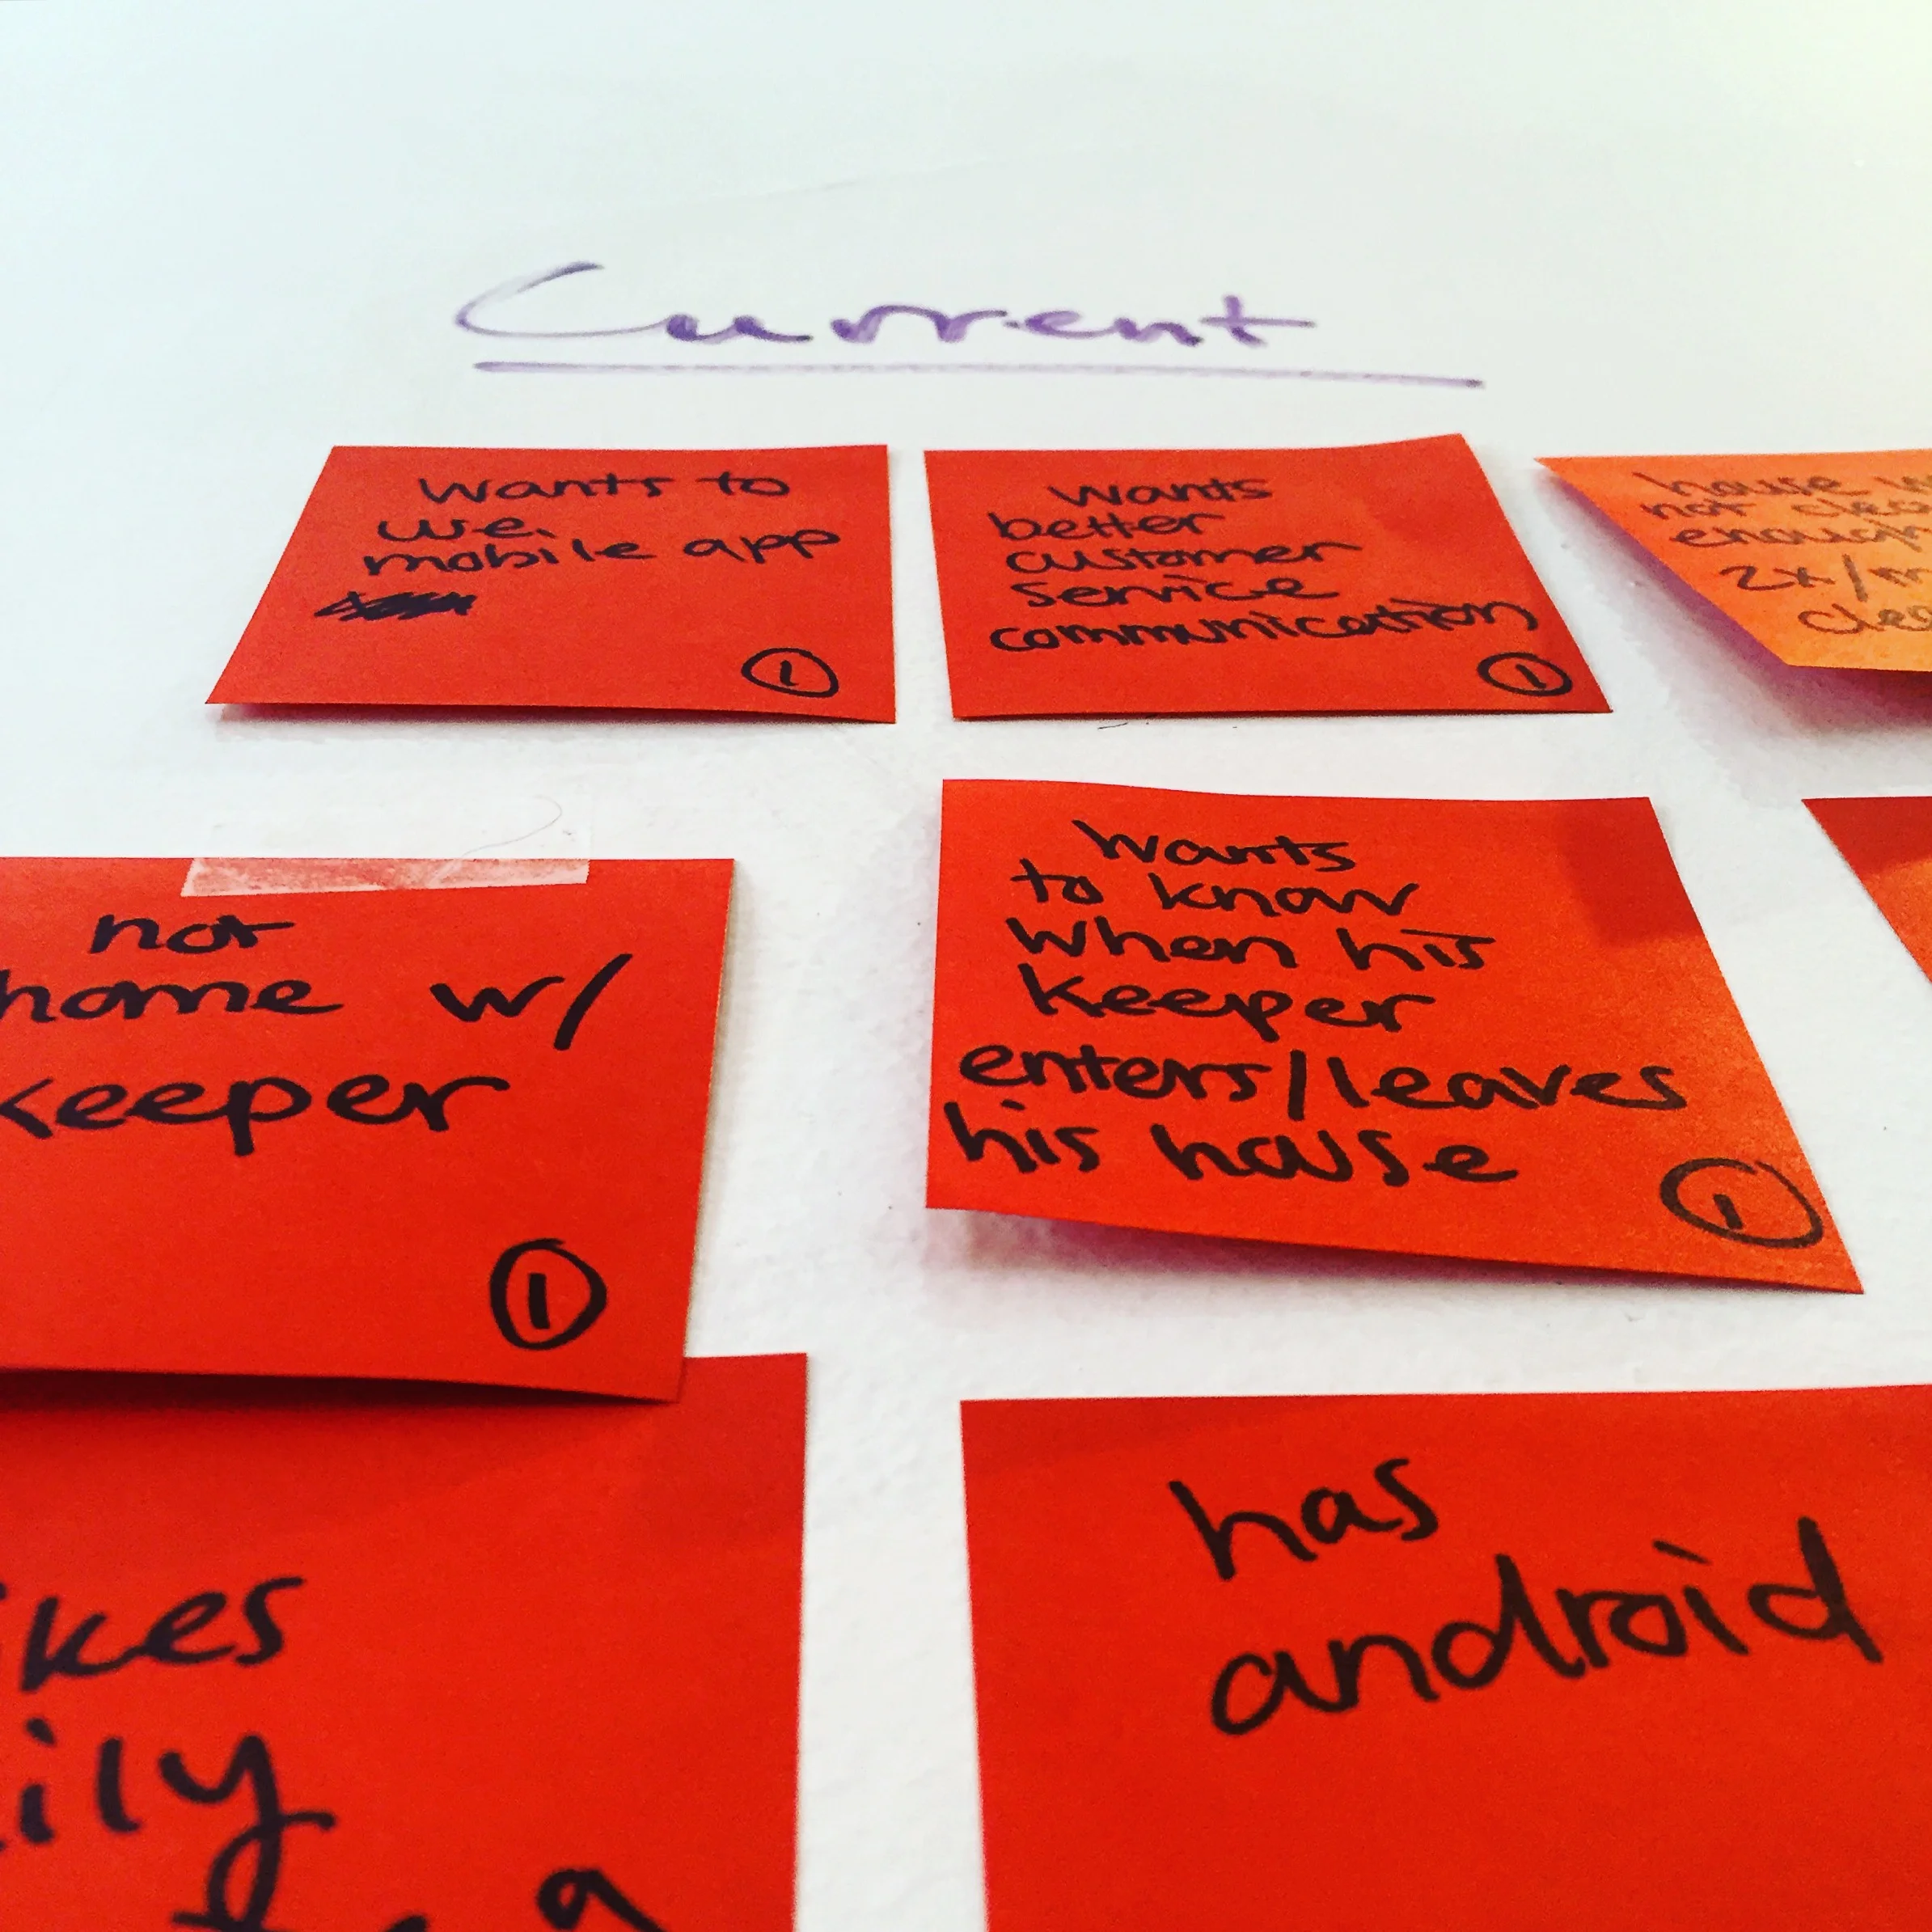 Current
wants to
use
mobile app
1
wants
better
customer
service
communication
1
house
not
enough
2x/m
not
home w/
keeper
1
wants
to know
when his
keeper
enters/leaves
his house
1
kes
ily
a
has
android